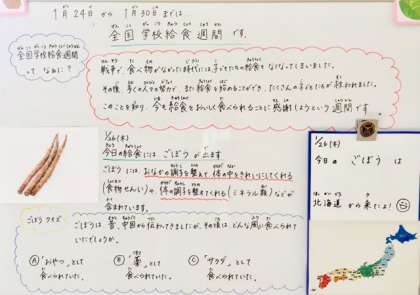 1月24日から 1月30日までは
全国学校給食週間です。
全国学校給食週間
って なぁに？
戦争で、食べ物がなかった時代には子どもたちの給食もなくなってしまいました。
その後、多くの人の努力で、また給食を始めることができ、たくさんの子どもたちが救われました。
このことを知り、今も給食をおいしく食べられることに感謝しようという週間です
1/26(木)
今日の給食には ごぼうが出ます
ごぼうには、おなかの調子を整えて体の中をきれいにしてくれる
(食物せんい)や、体の調子を整えてくれる(ミネラル類)などが
含まれています。
1/26(木)
今日の ごぼう は
北海道から来たよ!
ごぼうクイズ
ごぼうは 昔、中国から伝わってきましたが、その頃は、どんな風に食べられて
いたでしょうか。
Ⓐ 「おやつ」として
食べられていた。
Ⓑ 「薬」として
食べられていた。
Ⓒ 「サラダ」として
食べられていた。